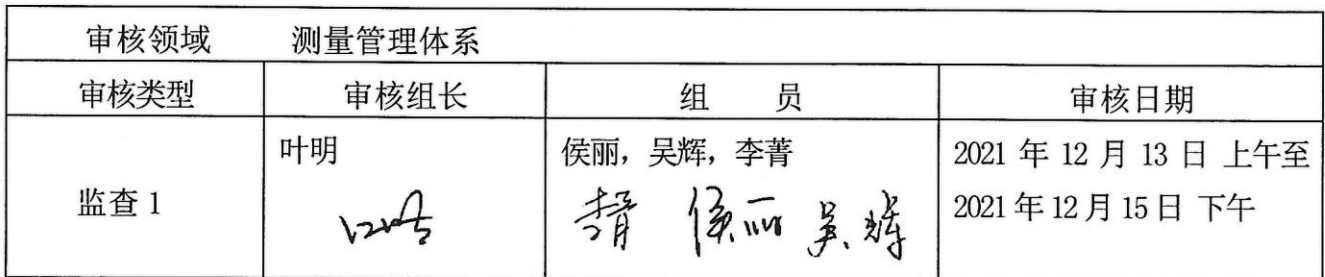 审核领域 测量管理体系
审核类型 审核组长 组 员 审核日期
监查 1
叶明
侯丽，吴辉，李菁
李菁 侯丽 吴辉
2021 年 12 月 13 日 上午至
2021 年 12 月 15 日 下午